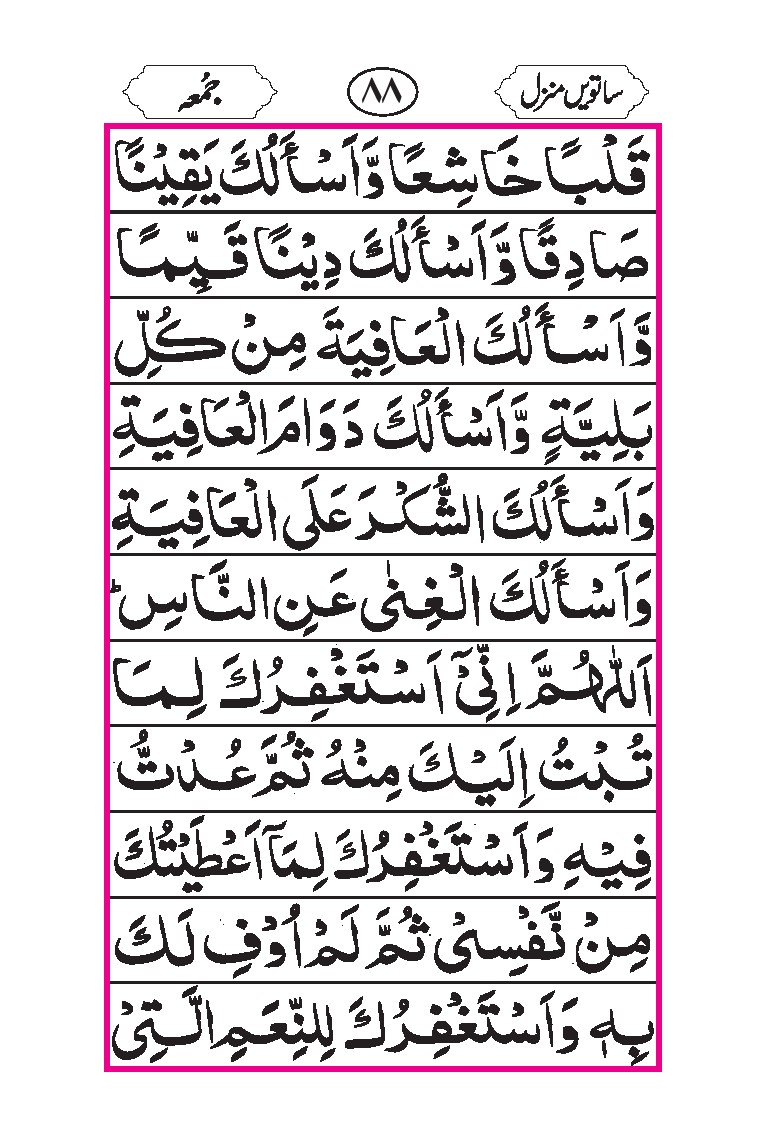 ساتویں منزل
۸۸
جُمعہ
قَلْبًا خَاشِعًا وَّاَسْأَلُكَ يَقِيْنًا
صَادِقًا وَّاَسْأَلُكَ دِيْنًا قَيِّمًا
وَّاَسْأَلُكَ الْعَافِيَةَ مِنْ كُلِّ
بَلِيَّةٍ وَّاَسْأَلُكَ دَوَامَ الْعَافِيَةِ
وَاَسْأَلُكَ الشُّكْرَ عَلَى الْعَافِيَةِ
وَاَسْأَلُكَ الْغِنٰى عَنِ النَّاسِ ؕ
اَللّٰهُمَّ اِنِّيْٓ اَسْتَغْفِرُكَ لِمَا
تُبْتُ اِلَيْكَ مِنْهُ ثُمَّ عُدْتُّ
فِيْهِ وَاَسْتَغْفِرُكَ لِمَآ اَعْطَيْتُكَ
مِنْ نَّفْسِيْ ثُمَّ لَمْ اُوْفِ لَكَ
بِهٖ وَاَسْتَغْفِرُكَ لِلنِّعَمِ الَّتِيْ